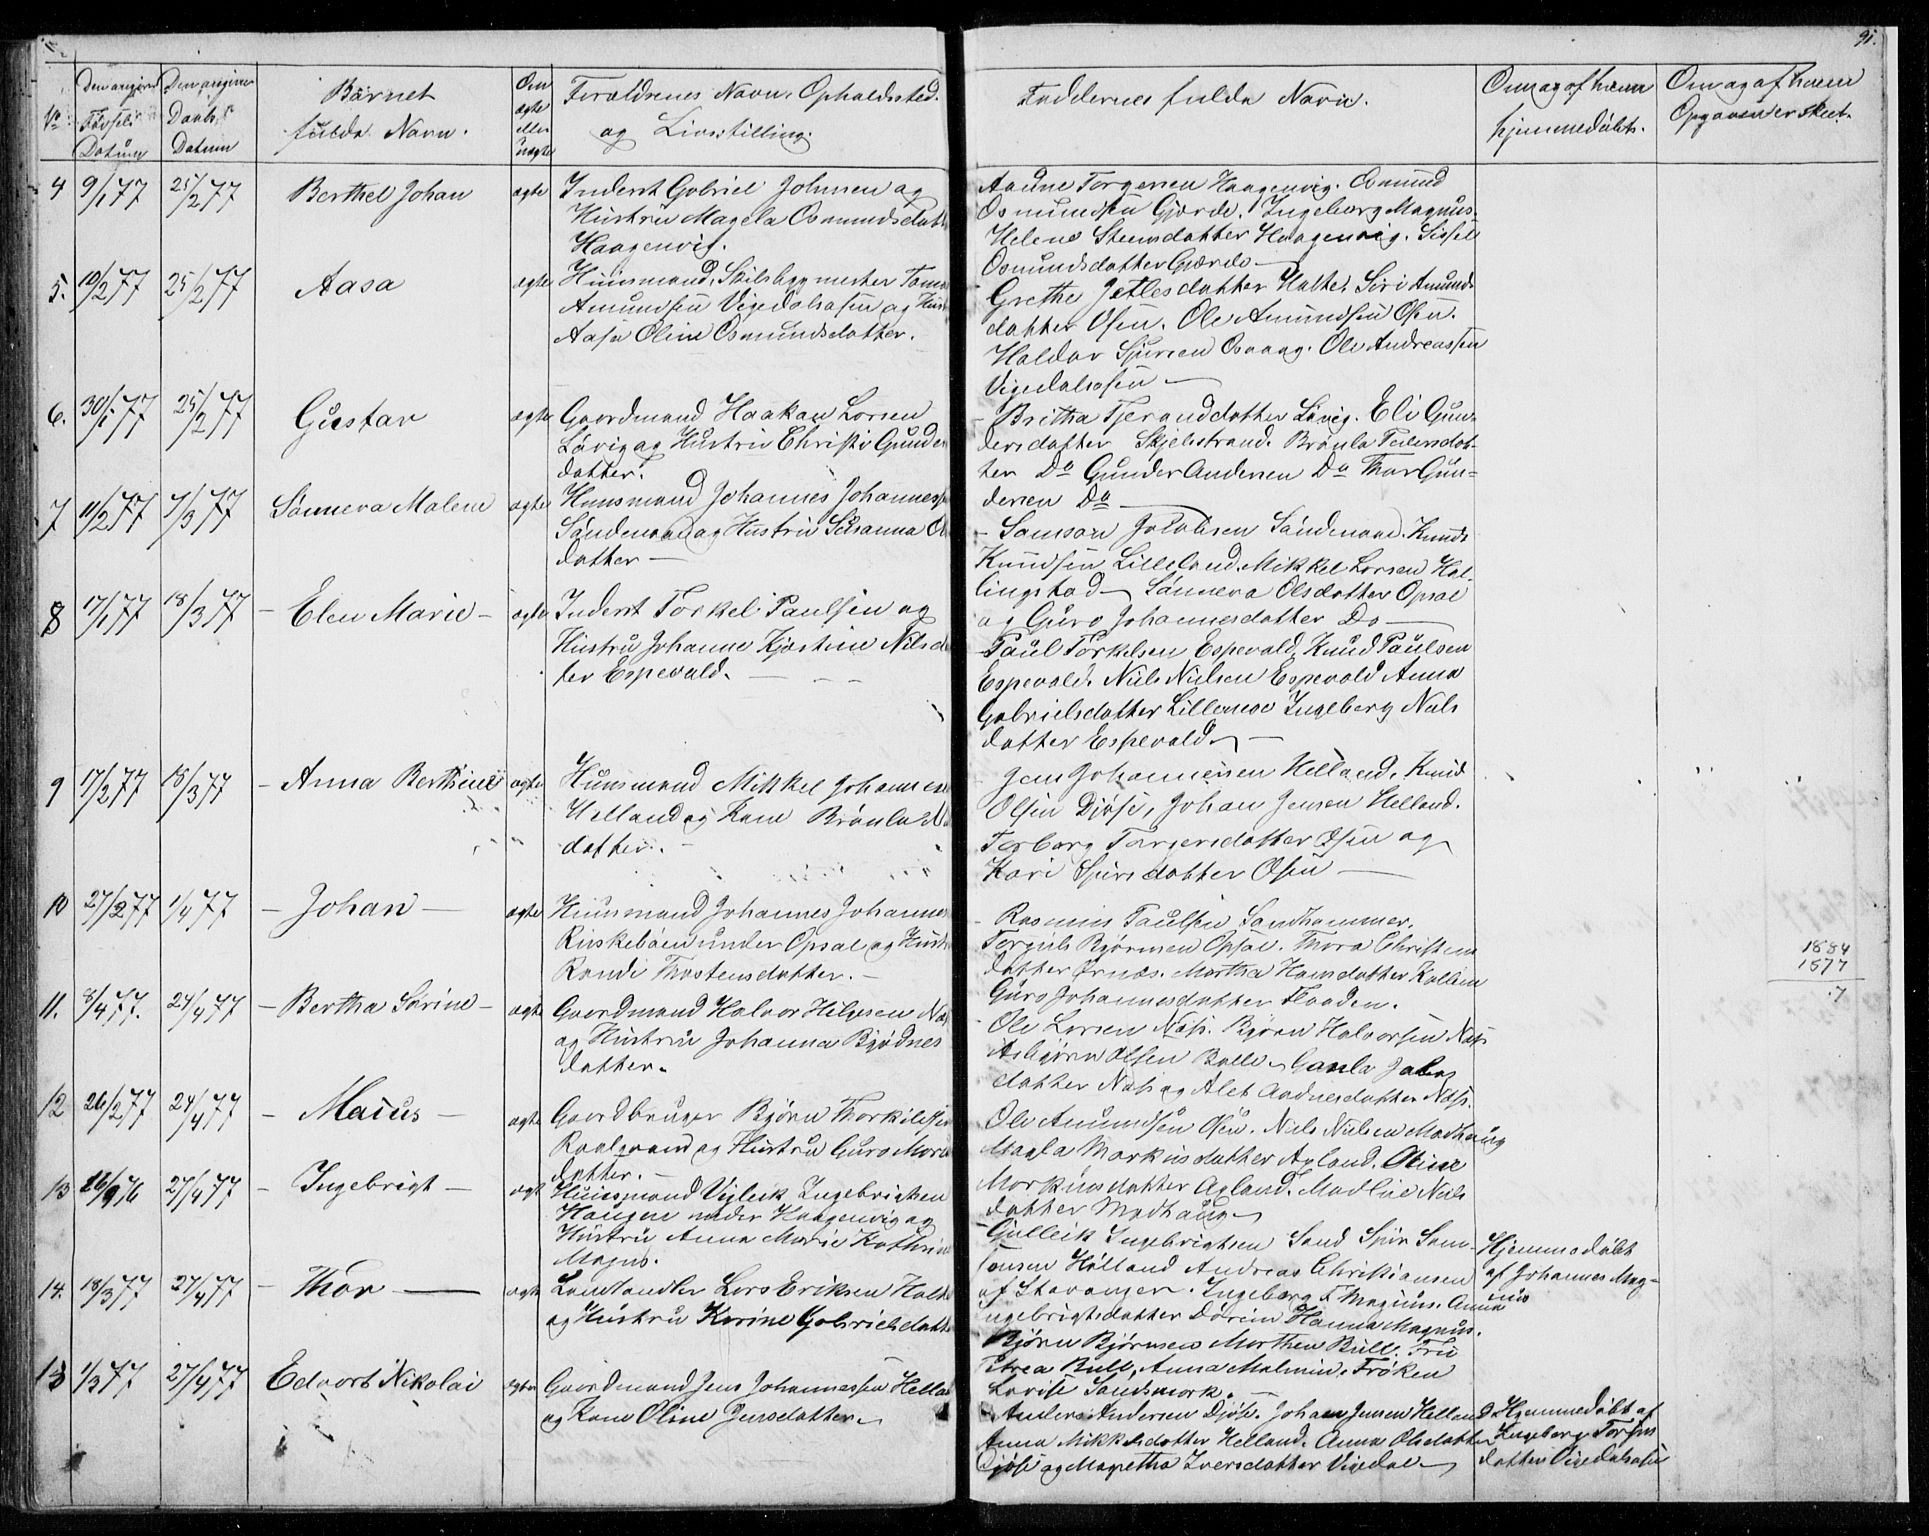 91.
No
Den angivne
Fødsels
Datum
Den angivne
Daabs
Datum
Barnet
fulde Navn.
Om
ægte
eller
uægte
Forældrenes Navn, Opholdssted.
og Livsstilling.
Faddernes fulde Navn.
Om og af hvem
hjemmedøbt.
Om og af hvem
Opgaven er skeet.
4 9/1 77 25/2 77 Berthel Johan ægte Inderst Gabriel Johnsen og
Hustru Magela Osmundsdatt
Haagenvig.
Aadne Torgersen Haagenvig. Osmund
Osmundsen Gjærde. Ingeborg Magnus-
Helene Steensdatter Haagenvig. Sissel
Osmundsdatter Gjærde
5. 10/2 77 25/2 77 Aasa ægte Huusmand, Skibsbygmester
Amundsen Vigedalsosen og
Aasa Oline Osmundsdatter.
Grethe Jetlesdatter Halte. Siri Amunds
datter Osen. Ole Amundsen Osen.
Haldor Sjursen Osvaag. Ole Andreassen
Vigedalsosen
6. 30/1 77 25/2 77 Gustav ægte Gaardmand Haakan Larsen
Løvig og Hustru Christi Gunders
datter.
Britha Tjeranddatter Løvig. Eli Gun-
dersdatter Skjelstrand. Brønla
ter Do Gunder Andersen Do Thor Gun-
dersen Do
7 11/2 77 4/3 77 Sønneva Malene ægte Huusmand Johannes Johannes
Søndenaa og Hustru Susanna
datter
Samson Jakobsen Søndenaa. Knud
Knudsen Lilleland. Mikkel Larsen Hal-
lingstad Sønneva Olsdatter Opsal
og Guro Johannesdatter Do
8 17/1 77 18/3 77 Elen Marie ægte Inderst Torkel Paulsen og
Hustru Johanne Kjostine Nilsda
ter Espevold.
Paul Torkelsen Espevold, Knud Paulsen
Espevold. Nils Nilsen Espevold Anna
Gabrielsdatter Lillemoe Ingeborg Nils
datter Espevold
9 17/2 77 18/3 77 Anna Berthine ægte Huusmand Mikkel Johannesen
Helland og Kone Brønla
datter.
Jens Johannesen Helland. Knud
Olsen Djøse, Johan Jensen Helland.
Torborg Torgersdatter Osen og
Kari Sjursdatter Osen
10 27/2 77 1/4 77 Johan ægte Huusmand Johannes Johannes
under Opsal og Hustr
Randi Thostensdatter.
Rasmus Paulsen Sandhammer.
Torgils Bjørnsen Opsal. Thora Christens
datter Ørnes. Martha Hansdatter
Guro Johannesdatter Flaaden.
1884
1877
7
11. 8/4 77. 24/4 77 Bertha Serine ægte Gaardmand Halvor Helgesen
og Hustru Johanna Bjødnes
datter.
Ole Larsen Næss. Bjørn Halvorsen Næs
Asbjørn Olsen Gaula Jakobs
datter Næs og Alet Aadnesdatter Næss.
12 26/2 77 24/4 77 Maius ægte Gaardbruger Bjørn Thorkildsen
og Hustru Guro
datter.
Ole Amundsen Osen. Nils Nielsen Madhaug
Magla Markusdatter Agland. Oline
Markusdatter Agland. Madlie Nils
datter Madhaug
13 27/4 77 Ingebrigt ægt Huusmand Vigleik Ingebrigtsen
Haugene under Haagenvig og
Hustru Anna Marie Kathrine
Magnus.
Gulleik Ingebrigtsen Sand Sjur Sam-
sonsen Hølland Andreas Christiansen
af Stavanger. Ingeborg T Magnus. Anna
Ingebrigtsdatter Hanna Magnus.
Hjemmedøbt
af Johannes Mag-
nus
14. 18/3 77 27/4 77 Thor ægte Landhandler Lars Eriksen
og Hustru Karine Gabrielsdatt
Bjørn Bjørnsen Morthen Bull. Fru
Threa Bull, Anna Malmin. Frøken
Lovise Sandsmark.
15 1/3 77 27/4 77 Edvart Nikolai ægte Gaardmand Jens Johannessen Hella
og Kone Oline Jensdatter
Anders Andersen Djøse. Johan Jensen Helland
Anna Mikkelsdatter Helland. Anna Olsdatter
Djøse og Magretha Iversdatter Vigedal
Hjemmedøbt af
Ingeborg
datter Vigedalsosen